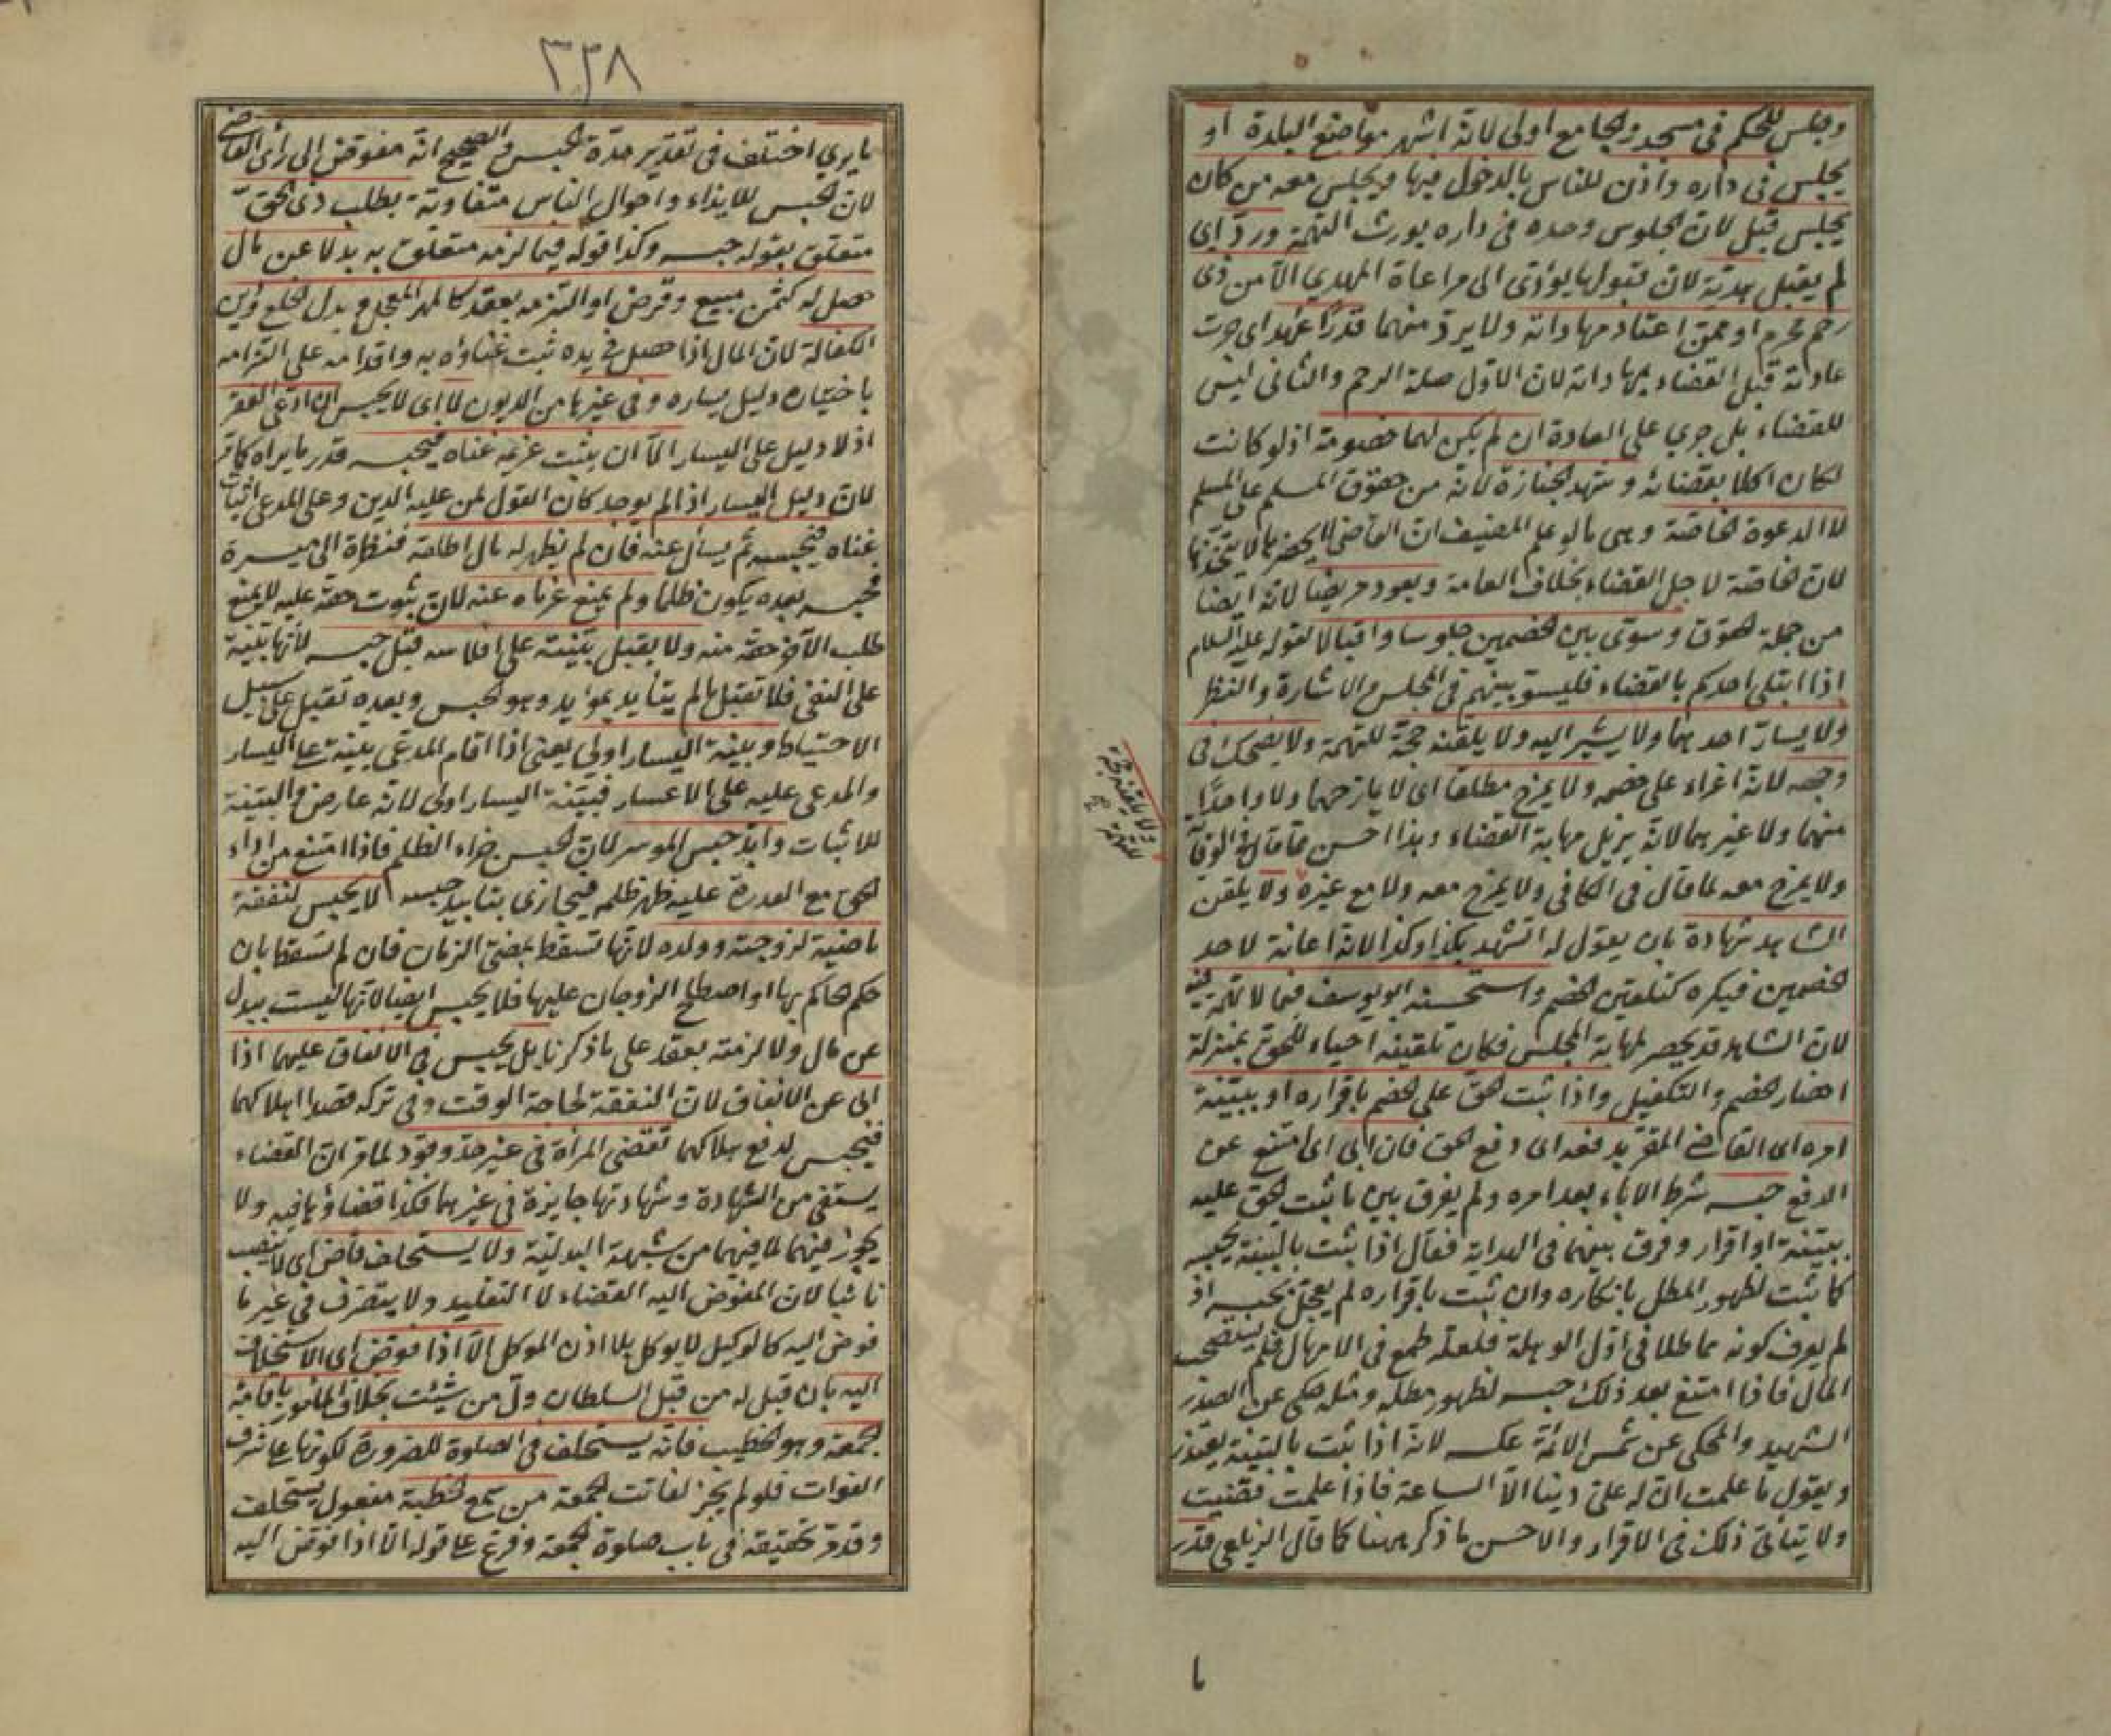 ويجلس للحكم في مسجد والجامع اولى لانه اشهر مواضع البلدة او
يجلس في داره واذن للناس بالدخول فيها ويجلس معه من كان
يجلس قبل لان الجلوس وحده في داره يورث التهمة ورد اى
لم يقبل هدية لان قبولها يؤدى الى مراعاة المهدي الا من ذى
رحم محرم او ممن اعتاد مهاداته ولا يرد منهما قدرا عهد اى جرت
عادته قبل القضاء بمهاداته لان الاول صلة الرحم والثانى ليس
للقضاء بل جري على العادة ان لم يكن لهما خصومة اذ لو كانت
لكان اكلا بقضائه وشهد الجنازة لانه من حقوق المسلم على المسلم
لا الدعوة الخاصة وهى ما لو علم المضيف ان القاضى لا يحضرها لا يتخذها
لان الخاصة لاجل القضاء بخلاف العامة ويعود مريضا لانه ايضا
من جملة الحقوق وسوى بين الخصمين جلوسا واقبالا لقوله عليه السلام
اذا ابتلى احدكم بالقضاء فليسو بينهم فى المجلس والاشارة والنظر
ولا يسار احدهما ولا يشير اليه ولا يلقنه حجة للتهمة ولا يضحك فى
وجهه لانه اغراء على خصمه ولا يمزح مطلقا اى لا يمازحهما ولا واحدا
منهما ولا غيرهما لانه يزيل مهابة القضاء وهذا احسن مما قال فى الوقاية
ولا يمزح معه لما قال فى الكافى ولا يمزح معه ولا مع غيره ولا يلقن
الشاهد شهادة بان يقول له اتشهد بكذا وكذا لانه اعانة لاحد
الخصمين فيكره كتلقين الخصم واستحسنه ابو يوسف فيما لا تهمة فيه
لان الشاهد قد يحصر لمهابة المجلس فكان تلقينه احياء للحق بمنزلة
احضار الخصم والتكفيل واذا ثبت الحق على الخصم باقراره او ببينة
امره اى القاضى المقر بدفعه اى دفع الحق فان ابى اى امتنع عن
الدفع حبسه شرط الاباء بعد امره ولم يفرق بين ما ثبت الحق عليه
ببينة او اقرار وفرق بينهما فى الهداية فقال اذا ثبت بالبينة يحبسه
كما ثبت لظهور المطل بانكاره وان ثبت باقراره لم يعجل بحبسه اذ
لم يعرف كونه مماطلا فى اول الوهلة فلعله طمع فى الامهال فلم يستصحب
المال فاذا امتنع بعد ذلك حبسه لظهور مطله ومثله حكى عن الصدر
الشهيد والمحكى عن شمس الائمة عكسه لانه اذا ثبت بالبينة يعتذر
ويقول ما علمت ان له على دينا الا الساعة فاذا علمت قضيت
ولا يتأتى ذلك فى الاقرار والاحسن ما ذكر ههنا كما قال الزيلعى قدر
ولا يلقنه حجة
للتهمة
ما
٣٣٨
ما يرى اختلف فى تقدير مدة الحبس والصحيح انه مفوض الى رأى القاضى
لان الحبس للايذاء واحوال الناس متفاوتة بطلب ذى الحق
متعلق بقوله حبسه وكذا قوله فيما لزمه متعلق به بدلا عن مال
حصل له كثمن مبيع وقرض او التزمه بعقد كالمهر المعجل وبدل الخلع ودين
الكفالة لان المال اذا حصل فى يده ثبت غناؤه به واقدامه على التزامه
باختياره دليل يساره وفى غيرها من الديون لا اى لا يحبس ان ادعى الفقر
اذ لا دليل على اليسار الا ان يثبت غريمه غناه فيحبسه قدر ما يراه كما مر
لان دليل اليسار اذا لم يوجد كان القول لمن عليه الدين وعلى المدعى اثبات
غناه فيحبسه ثم يسأل عنه فان لم يظهر له مال اطلقه فنظرة الى ميسرة
فحبسه بعده يكون ظلما ولم يمنع غرماه عنه لان ثبوت حقه عليه لا يمنع
طلب الآخر حقه منه ولا يقبل بينته على افلاسه قبل حبسه لانها بينة
على النفى فلا تقبل ما لم يتأيد بمؤيد وهو الحبس وبعده تقبل على سبيل
الاحتياط وبينة اليسار اولى يعنى اذا اقام المدعى بينة على اليسار
والمدعى عليه على الاعسار فبينة اليسار اولى لانه عارض والبينة
للاثبات وابد حبس الموسر لان الحبس جزاء الظلم فاذا امتنع من اداء
الحق مع القدرة عليه ظهر ظلمه فيجازى بتابيد حبسه لا يحبس لنفقة
ماضية لزوجته وولده لانها تسقط بمضى الزمان فان لم تسقط بان
حكم الحاكم بها او اصطلح الزوجان عليها فلا يحبس ايضا لانها ليست ببدل
عن مال ولا لزمته بعقد على ما ذكرنا بل يحبس فى الانفاق عليهما اذا
ابى عن الانفاق لان النفقة لحاجة الوقت وفى تركه قصد اهلاكهما
فيحبس لدفع هلاكهما تقضى المرأة فى غير حد وقود لما مر ان القضاء
يستقى من الشهادة وشهادتها جايزة فى غيرهما فكذا قضاؤها فيه ولا
يجوز فيهما لما فيهما من شبهة البدلية ولا يستخلف قاض اى لا ينصب
نائبا لان المفوض اليه القضاء لا التقليد ولا يتصرف فى غير ما
فوض اليه كالوكيل لا يوكل بلا اذن الموكل الا اذا فوض اى الاستخلاف
اليه بان قيل له من قبل السلطان ول من شئت بخلاف المأمور باقامة
الجمعة وهو الخطيب فانه يستخلف فى الصلوة للضرورة لكونها على شرف
الفوات فلو لم يجز لفاتت الجمعة من سمع الخطبة مفعول يستخلف
وقد مر تحقيقه فى باب صلوة الجمعة وفرع على قوله الا اذا فوض اليه